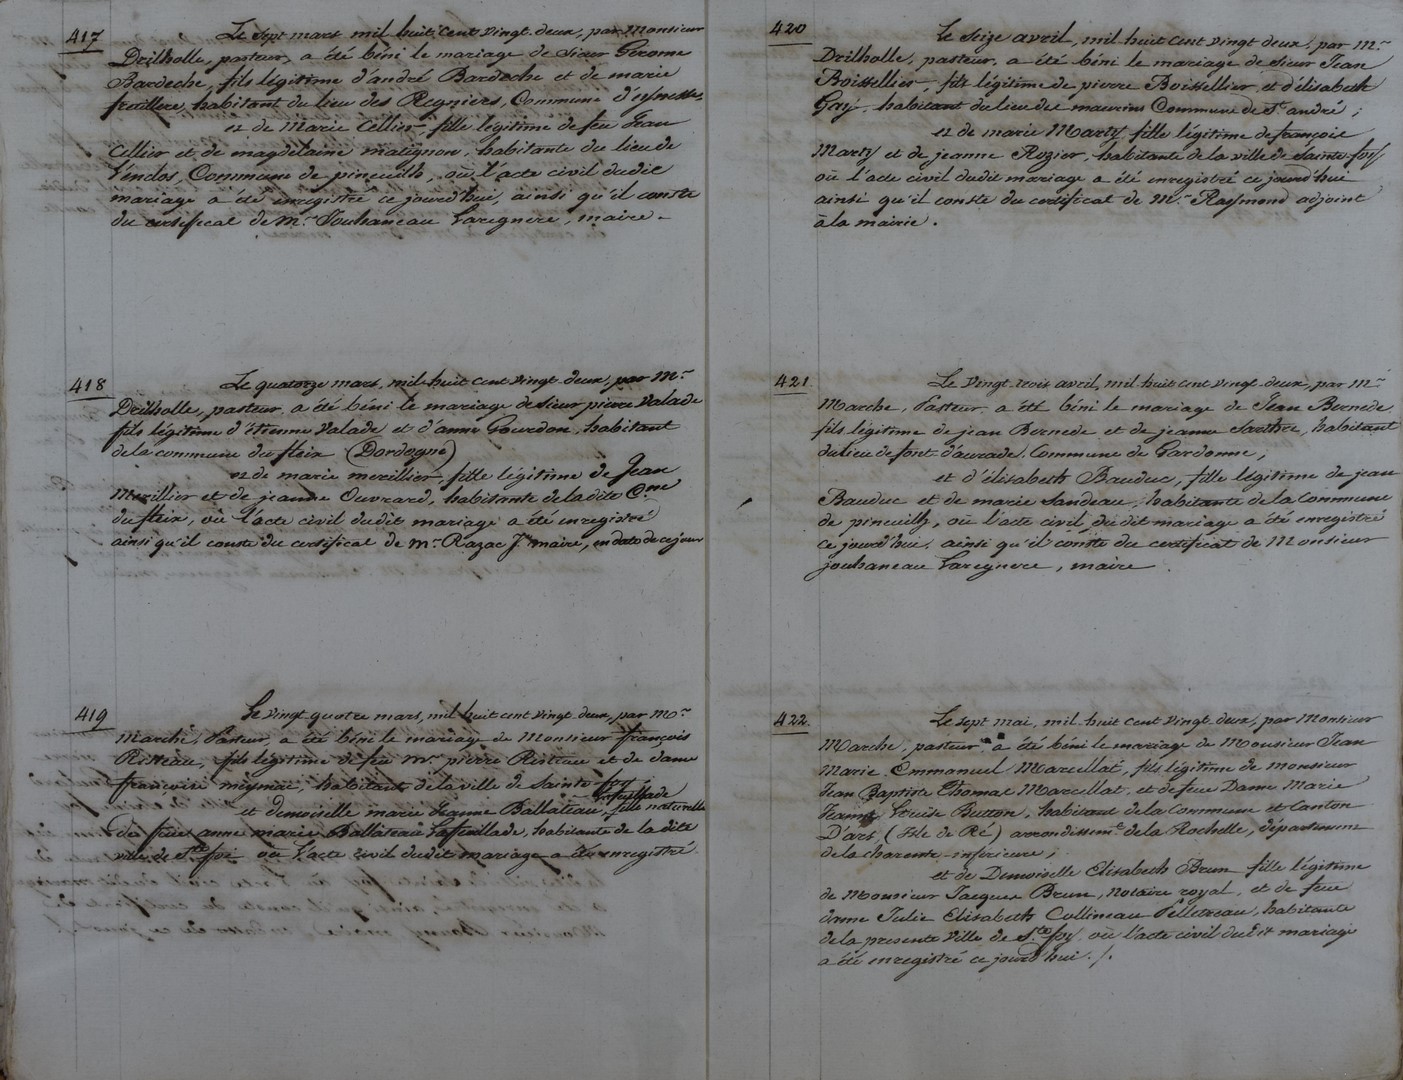 417
Le Sept mars mil huit cent vingt-deux, par Monsieur
Drilholle, pasteur, a été béni le mariage de Sieur Gérome
Bardeche, fils légitime d'andré Bardeche et de marie
habitant du lieu des Regniers, Commune d'ynesse
et de Marie Cellier, fille légitime de feu Jean
Cellier et de magdelaine matignon, habitante du lieu de
Commune de pineuilh, où l'acte civil dudit
mariage a été enregistré ce jourd'hui, ainsi qu'il conste
du certificat de Mr. Jouhaneau Laregnere, maire -
418
Le quatorze mars, mil-huit cent vingt-deux, par Mr.
Drilholle, pasteur, a été béni le mariage de Sieur pierre Valade
fils légitime d'Etienne Valade et d'anne Gourdon, habitant
de la commune du fleix (Dordogne)
et de marie merillier, fille légitime de Jean
Merillier et de jeanne Ouvrard, habitante de la dite Cne
du fleix, où l'acte civil dudit mariage a été enregistré
ainsi qu'il conste du certificat de Mr. Razac Je. maire, en date de ce jour
419
Le vingt-quatre mars, mil huit cent vingt-deux, par Mr.
Marche, Pasteur, a été béni le mariage de Monsieur françois
Risteau, fils légitime de feu Mr. pierre Risteau et de dame
françoise meymire, habitant de la ville de Sainte foy;
Lafeuillade
et demoiselle marie Jeanne Ballateau, fille naturelle
de feue anne marie Ballateau Lafeuillade, habitante de la dite
ville de Ste foi où l'acte civil dudit mariage a été enregistré
420
Le Seize avril, mil huit cent vingt deux, par Mr.
Drilholle, pasteur, a été béni le mariage de Sieur Jean
Boissellier, fils légitime de pierre Boissellier et d'élisabeth
Gay, habitant du lieu des maurins Commune de St. andré;
et de marie Marty, fille légitime de françois
Marty et de jeanne Rozier, habitante de la ville de Sainte-foy
où l'acte civil dudit mariage a été enregistré ce jourd'hui
ainsi qu'il conste du certificat de Mr. Raymond adjoint
à la mairie.
421.
Le Vingt-trois avril, mil huit cent vingt-deux, par Mr.
Marche, Pasteur, a été béni le mariage de Jean Bernede,
fils légitime de jean Bernede et de jeanne habitant
du lieu de font-d'aurade, Commune de Gardonne;
et d'élisabeth Bauduc, fille légitime de jean
Bauduc et de marie Sandeau, habitante de la Commune
de pineuilh, où l'acte civil dudit mariage a été enregistré
ce jourd'hui, ainsi qu'il conste du certificat de Monsieur
jouhaneau Laregnere, maire
422.
Le sept mai, mil huit cent vingt-deux, par Monsieur
Marche, pasteur, a été béni le mariage de Monsieur Jean
Marie Emmanuel Marcellat, fils légitime de monsieur
Jean Baptiste Thomas Marcellat, et de feue Dame Marie
Jeanne Louise Button, habitant de la Commune et Canton
D'ars (Isle de Ré) arrondissemt. de la Rochelle, département
de la charente-inférieure;
et de Demoiselle Elisabeth Brun fille légitime
de Monsieur Jacques Brun, Notaire royal, et de feue
dame Julie Elisabeth Collineau Pelletreau, habitante
de la presente Ville de Ste. foy, où l'acte civil dudit mariage
a été enregistré ce jourd'hui. /.